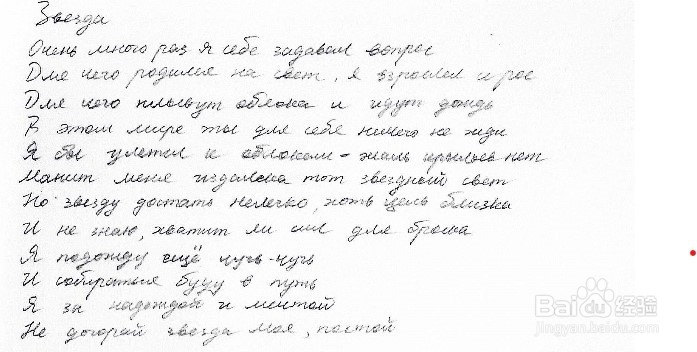 Звезда
Очень много раз я себе задавал вопрос
Для чего родился на свет, я взрослел и рос
Для чего плывут облака и идут дождь
В этом мире ты для себя ничего не жди
Я бы улетел к облакам - жаль крыльев нет
Манит меня издалека тот звездный свет
Но звезду достать нелегко, хоть цель близка
И не знаю, хватит ли сил для броска
Я подожду ещё чуть-чуть
И собираться буду в путь
Я за надеждой и мечтой
Не догорай звезда моя, постой
Baidu 经验
jingyan.baidu.com